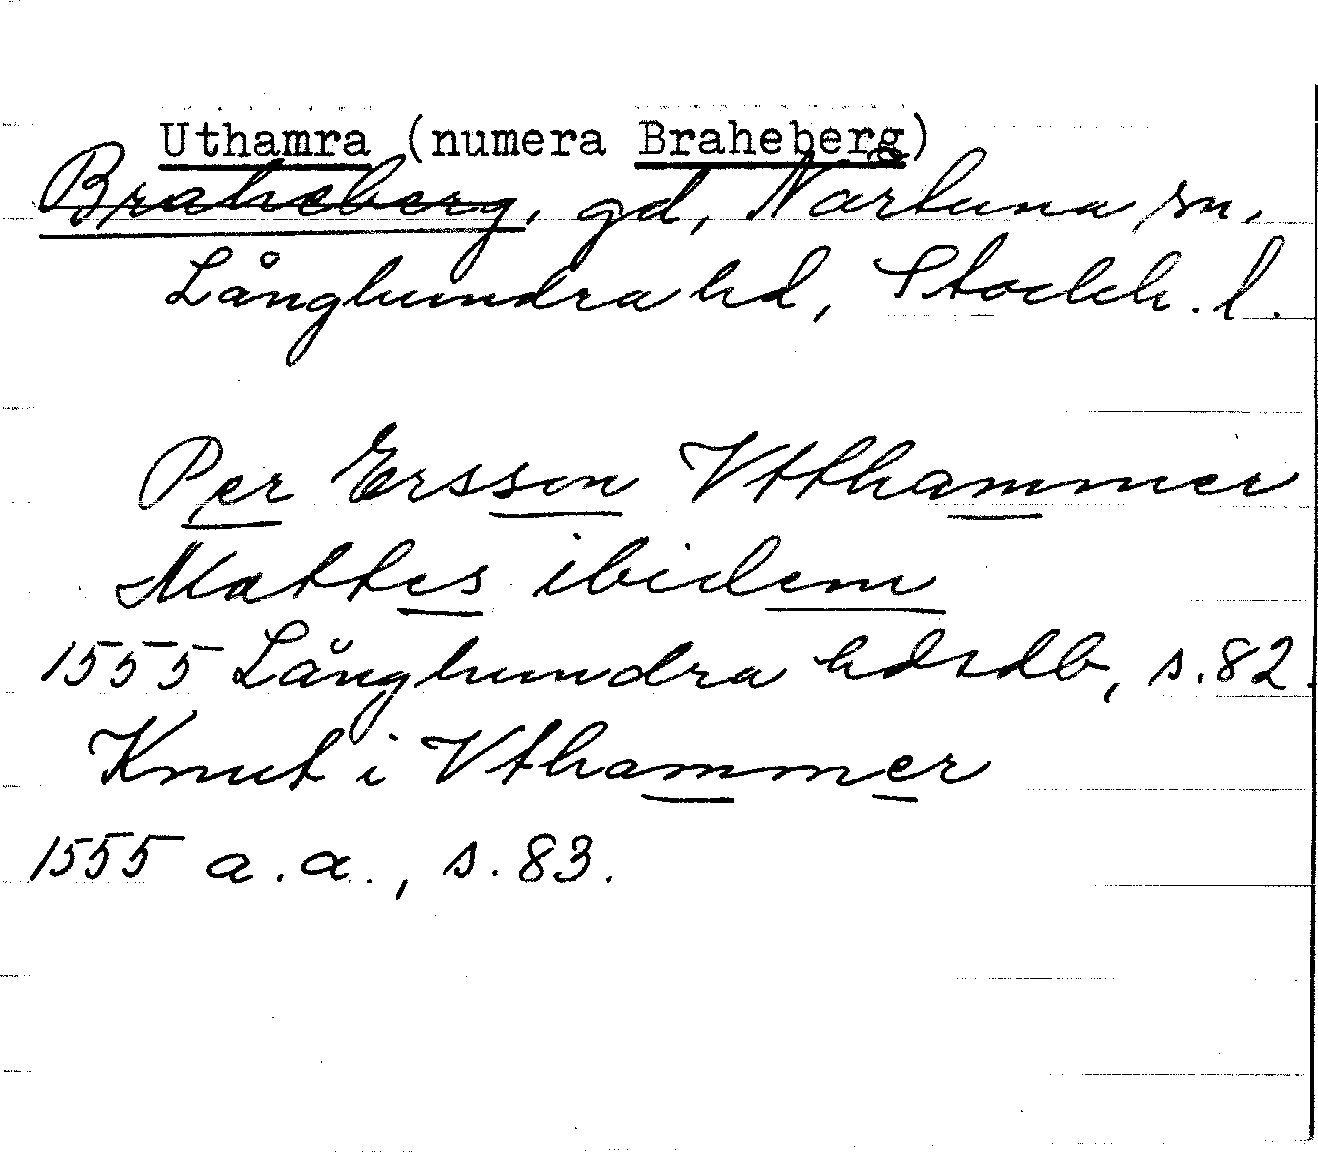 Uthamra (numera Braheberg)
Braheberg, gd, Närtuna sn,
Långhundra hd, Stockh. l.
Per Ersson Vtthammer
Mattes ibidem
1555 Långhundra hdrdb, s. 82.
Knut i Vthammer
1555 a. a., s. 83.